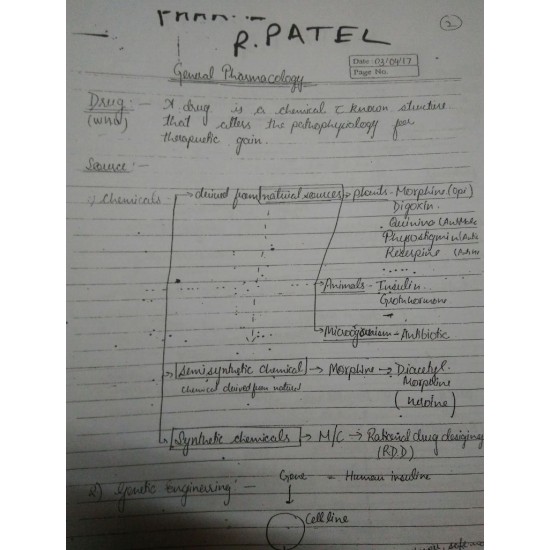 R. PATEL
2
Date 03/04/17
Page No.
General Pharmacology
Drug :- A drug is a chemical c̄ known structure
(WHO) that alters the pathophysiology for
therapeutic gain.
Source :-
1) Chemicals derived from natural sources → plants - Morphine (Opi
Digoxin
Quinine
Physostigmin
Reserpine
.....
Animals - Insulin
Growthhormone
Microorganism - Antibiotic
Semisynthetic chemical → Morphine → Diacetyl
Chemical derived from nature Morphine
(Heroine)
Synthetic chemicals → M/C → Rational drug designing
(RDD)
2) Genetic engineering :- Gene = Human insuline
↓
Cell line